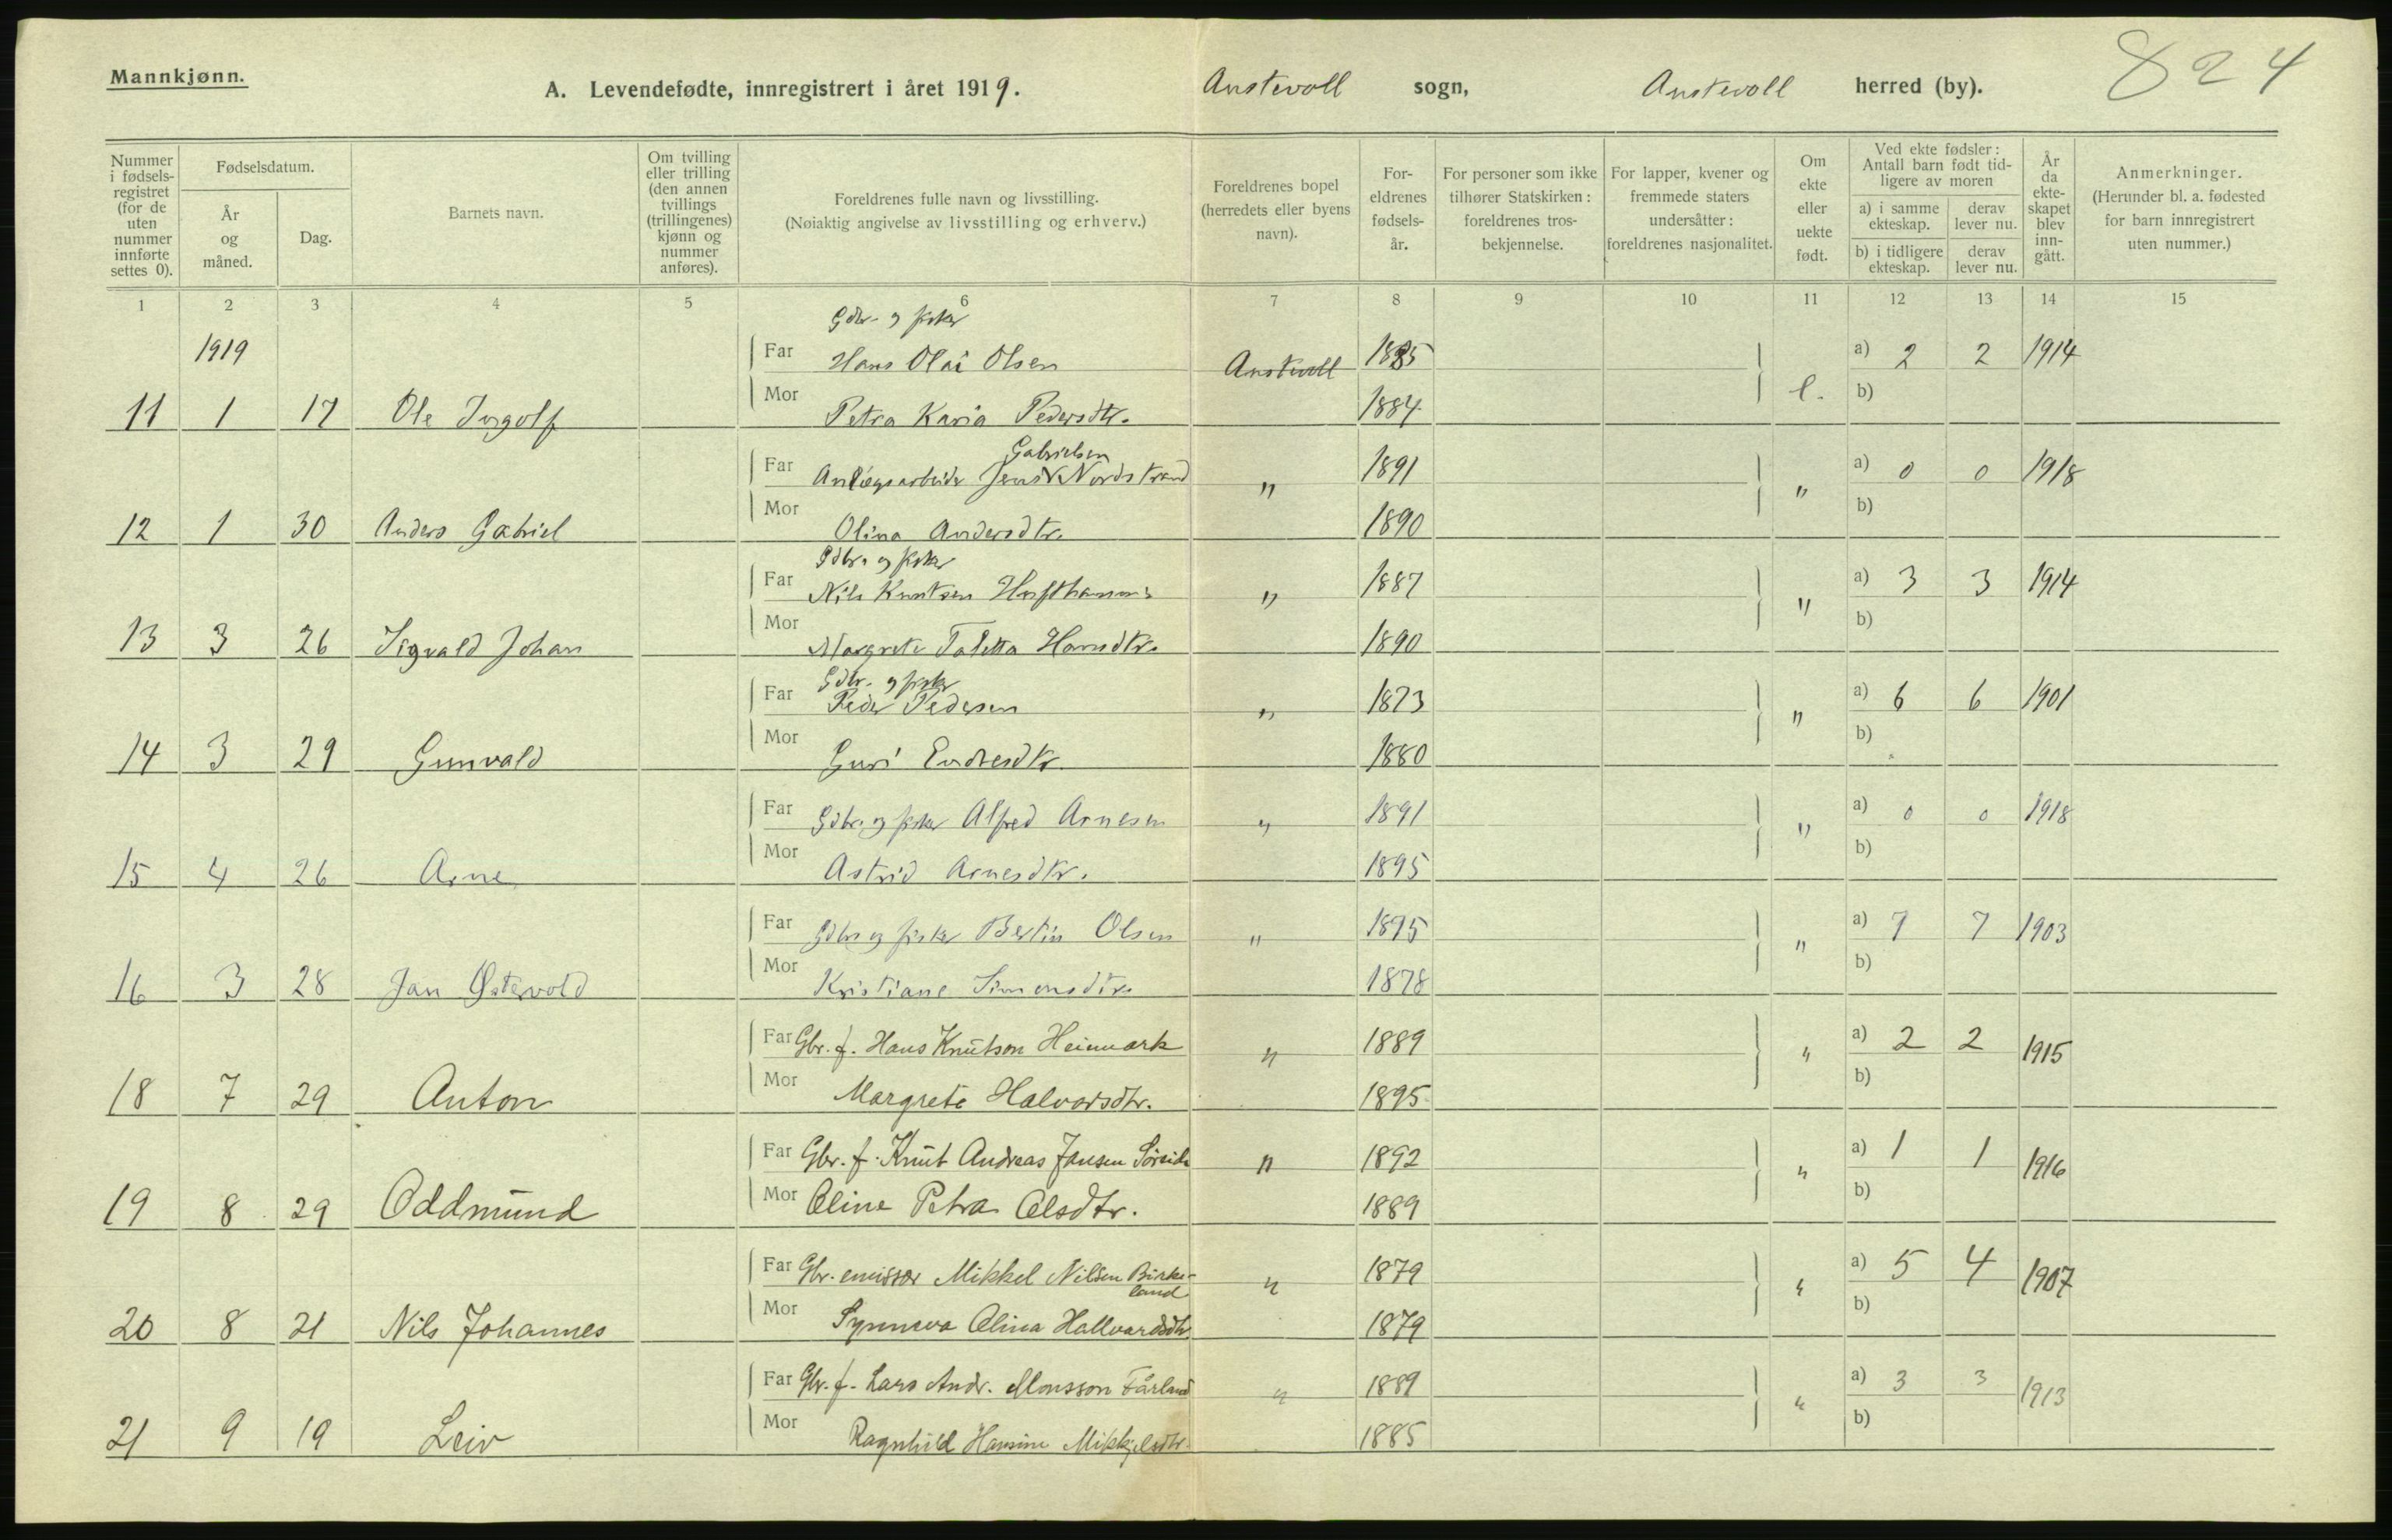 Mannkjønn.
A. Levendefødte, innregistrert i året 1919.
Austevoll sogn, Austevoll herred (by).
824
Nummer i fødsels-registret (for de uten nummer innførte settes 0).
Fødselsdatum.
År og måned.
Dag.
Barnets navn.
Om tvilling eller trilling (den annen tvillings (trillingenes) kjønn og nummer anføres).
Foreldrenes fulle navn og livsstilling.
(Nøiaktig angivelse av livsstilling og erhverv.)
Foreldrenes bopel (herredets eller byens navn).
For-eldrenes fødsels-år.
For personer som ikke tilhører Statskirken: foreldrenes tros-bekjennelse.
For lapper, kvener og fremmede staters undersåtter: foreldrenes nasjonalitet.
Om ekte eller uekte født.
Ved ekte fødsler: Antall barn født tid-ligere av moren
a) i samme ekteskap.
derav lever nu.
b) i tidligere ekteskap.
derav lever nu.
År da ekte-skapet blev inn-gått.
Anmerkninger.
(Herunder bl. a. fødested for barn innregistrert uten nummer.)
1 2 3 4 5 6 7 8 9 10 11 12 13 14 15
Gdbr. og fisker
1919 Far Hans Olai Olsen Austevoll 1885 a) 2 2 1914
11 1 17 Ole Ingolf Mor Petra Karia Pedersdtr. 1884 e. b)
Gabrielsen
Far Anlægsarbeider Jens Nordstrand " 1891 " a) 0 0 1918
12 1 30 Anders Gabriel Mor Olina Andersdtr. 1890 b)
Gdbr. og fisker
Far Nils Knutsen Hufthammer " 1887 " a) 3 3 1914
13 3 26 Sigvald Johan Mor Margrete Taletta Hansdtr. 1890 b)
Gdbr. og fisker
Far Peder Pedersen " 1873 " a) 6 6 1901
14 3 29 Gunvald Mor Guri Endresdtr. 1880 b)
Far Gdbr. og fisker Alfred Arnesen " 1891 " a) 0 0 1918
15 4 26 Arne Mor Astrid Arnesdtr. 1895 b)
Far Gdbr og fisker Bertin Olsen " 1875 " a) 7 7 1903
16 3 28 Jan Østervold Mor Kristiane Simonsdtr. 1878 b)
Far Gbr. f. Hans Knutson Heimark " 1889 " a) 2 2 1915
18 7 29 Anton Mor Margrete Halvorsdtr. 1895 b)
Far Gbr. f. Knut Andreas Jansen Sørside " 1892 " a) 1 1 1916
19 8 29 Oddmund Mor Oline Petra Olsdtr. 1889 b)
Far Gbr. emissær Mikkel Nilsen Birke-
land " 1879 " a) 5 4 1907
20 8 21 Nils Johannes Mor Synneva Olina Hallvardsdtr. 1879 b)
Far Gbr. f. Lars Andr. Monsson Fårland " 1889 " a) 3 3 1913
21 9 19 Leiv Mor Ragnhild Hansine Mikkjelsdtr. 1885 b)